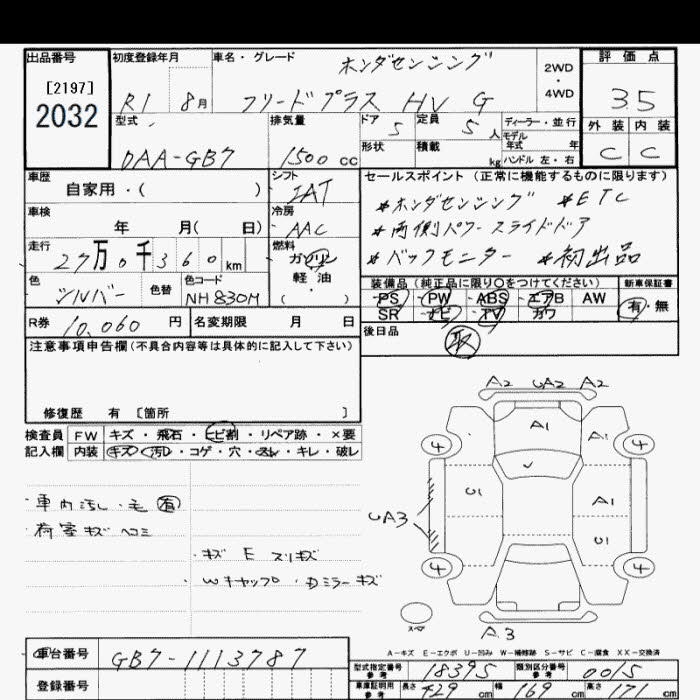 出品番号 初度登録年月 車名・グレード ホンダセンシング 2WD・4WD 評価点
[2197]
2032 R1 8月 フリードプラス HV G 3.5
型式 排気量 ドア 5 定員 5人 ディーラー・並行 外装 内装
モデル年式 年
DAA-GB7 1500cc 形状 積載 kg ハンドル 左・右 C C
車歴 シフト セールスポイント(正常に機能するものに限ります)
自家用・( ) IAT *ホンダセンシング *ETC
車検 冷房 *両側パワースライドドア
年 月( 日) AAC
走行 燃料 *バックモニター *初出品
27万0千360km ガソリン
軽油
( )
色 色替 色コード 装備品(純正品に限り○をつけてください) 新車保証書
シルバー NH830M PS PW ABS エアB AW 有・無
SR ナビ TV カワ
R券 10,060円 名変期限 月 日 後日品
取
注意事項申告欄(不具合内容等は具体的に記入して下さい)
修復歴 有 [箇所 ]
検査員 FW キズ・飛石・ヒビ割・リペア跡・×要
記入欄 内装 キズ・汚レ・コゲ・穴・スレ・キレ・破レ
A2 UA2 A2
A1 A1
4 4
U1 A1
UA3 U1
4 4
スペア A3
・車内汚レ・毛有
・荷室キズ ヘコミ
・キズ E スリキズ
・Wキャップ・Dミラーキズ
A-キズ E-エクボ U-凹み W-補修跡 S-サビ C-腐食 XX-交換済
車台番号 GB7-1113787
登録番号
型式指定番号 参考 18395 類別区分番号 参考 0015
車庫証明用 参考 長さ 429cm 幅 169cm 高さ 171cm